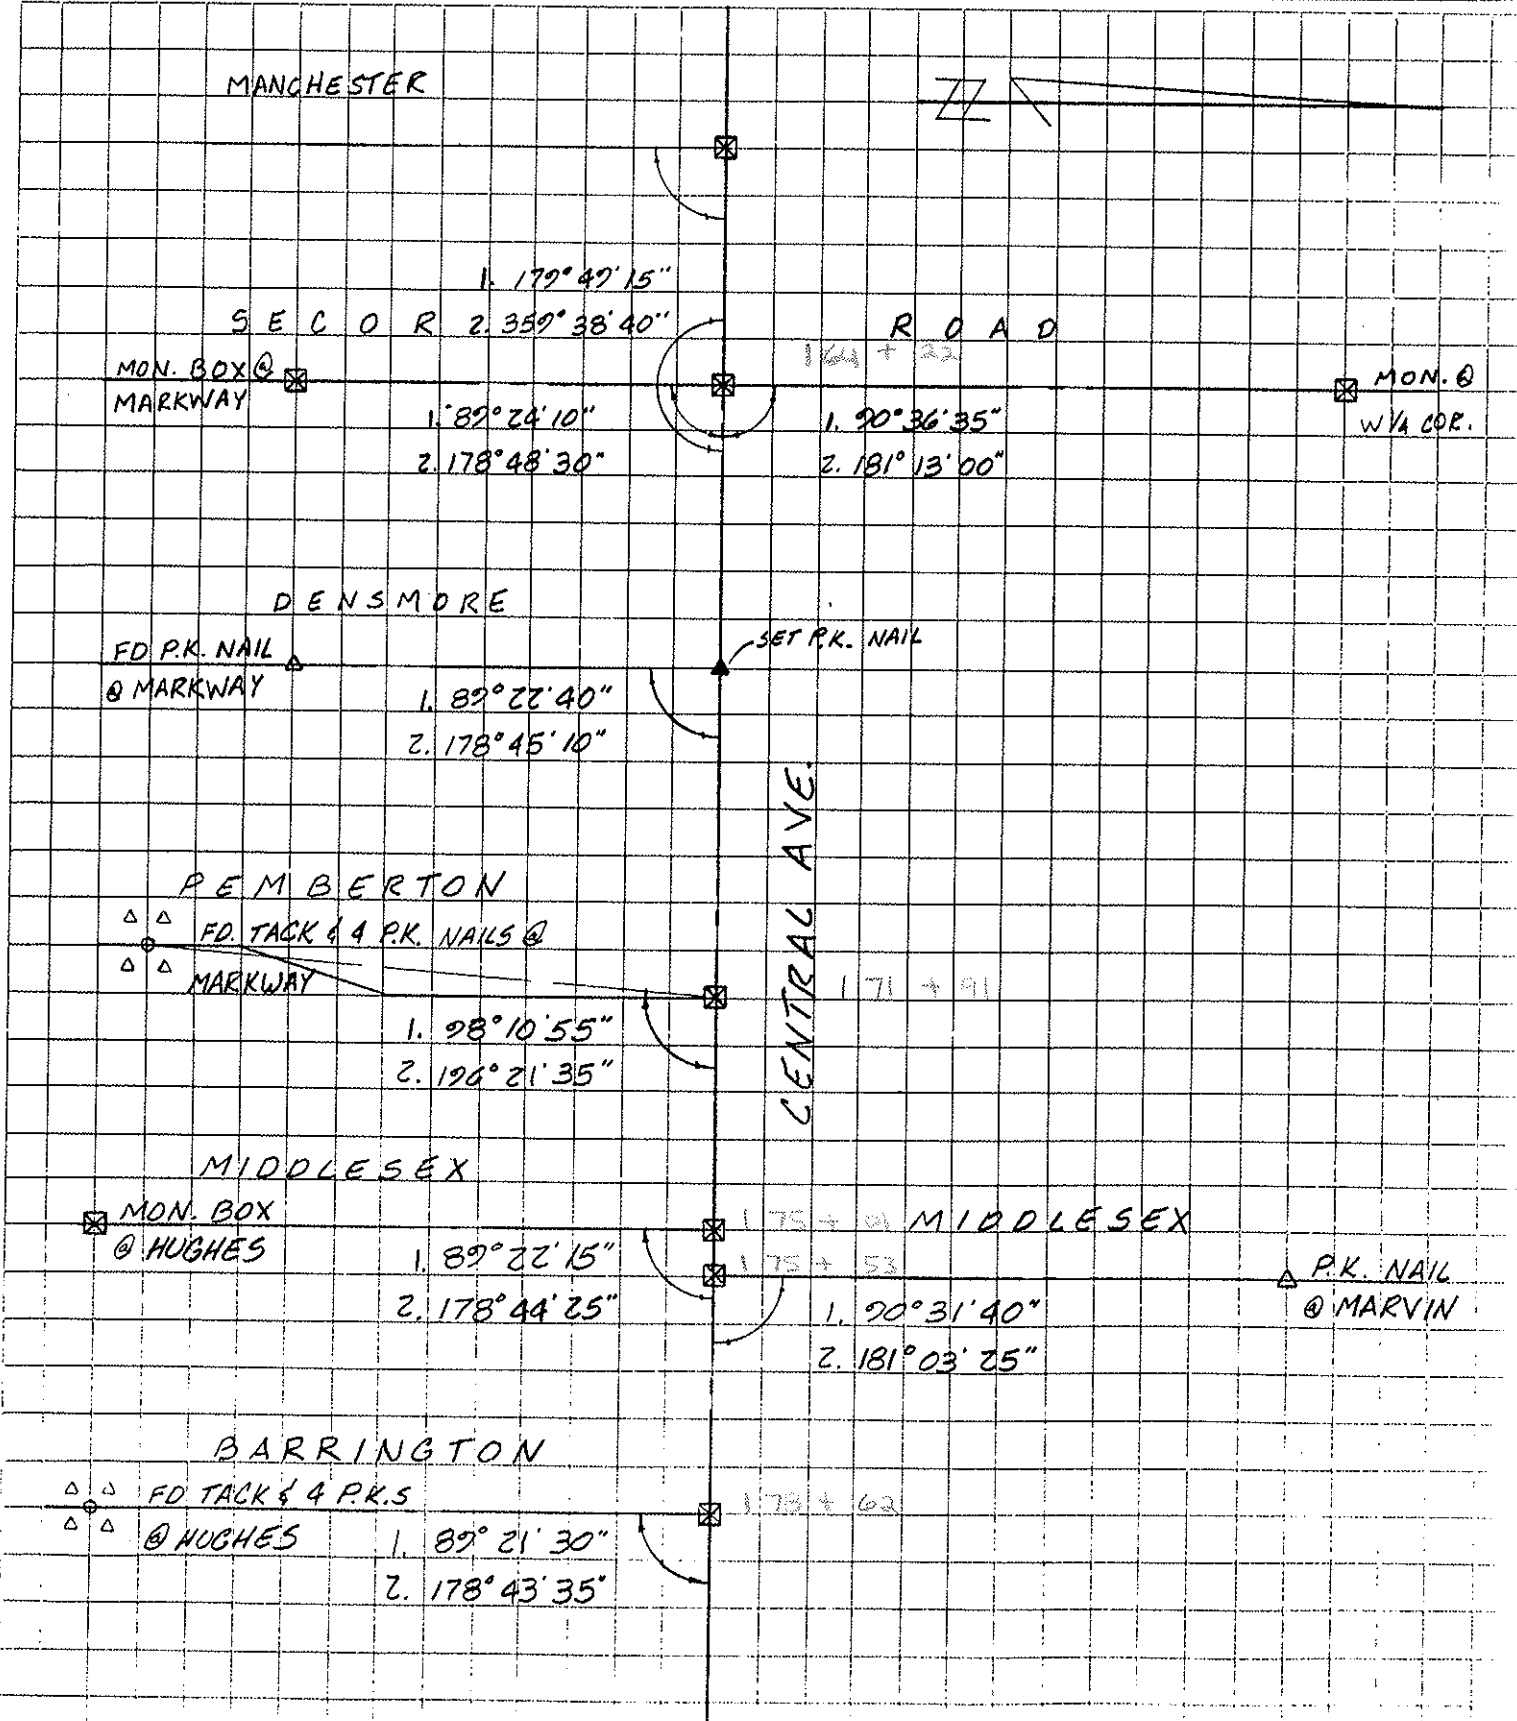 MANCHESTER
N
1. 179° 49' 15"
SECOR 2. 359° 38' 40" ROAD
164 + 22
MON. BOX @
MARKWAY
MON. @
W 1/4 COR.
1. 89° 24' 10"
2. 178° 48' 30"
1. 90° 36' 35"
2. 181° 13' 00"
DENSMORE
FD P.K. NAIL
@ MARKWAY
SET P.K. NAIL
1. 89° 22' 40"
2. 178° 45' 10"
CENTRAL AVE.
PEMBERTON
FD. TACK & 4 P.K. NAILS @
MARKWAY
171 + 91
1. 98° 10' 55"
2. 196° 21' 35"
MIDDLESEX
MON. BOX
@ HUGHES
175 + 01 MIDDLESEX
175 + 53
1. 89° 22' 15"
2. 178° 44' 25"
P.K. NAIL
@ MARVIN
1. 90° 31' 40"
2. 181° 03' 25"
BARRINGTON
FD TACK & 4 P.K.S
@ HUGHES
173 + 62
1. 89° 21' 30"
2. 178° 43' 35"